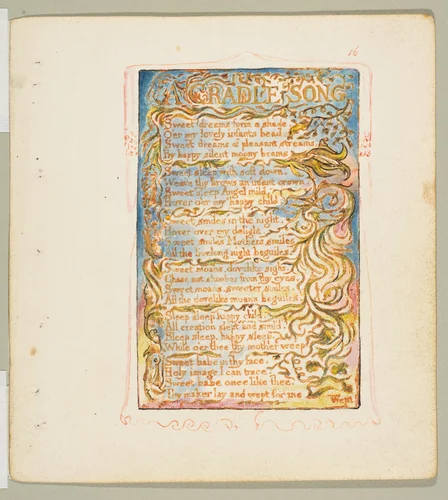 16
A CRADLE SONG
Sweet dreams form a shade
Oer my lovely infants head
Sweet dreams of pleasant streams
By happy silent moony beams
Sweet sleep with soft down
Weave thy brows an infant crown
Sweet sleep Angel mild
Hover oer my happy child
Sweet smiles in the night
Hover over my delight
Sweet smiles Mothers smiles
All the livelong night beguiles
Sweet moans, dovelike sighs
Chase not slumber from thy eyes
Sweet moans, sweeter smiles
All the dovelike moans beguiles
Sleep sleep happy child
All creation slept and smil'd
Sleep sleep, happy sleep
While oer thee thy mother weep
Sweet babe in thy face
Holy image I can trace
Sweet babe once like thee
Thy maker lay and wept for me
Wept